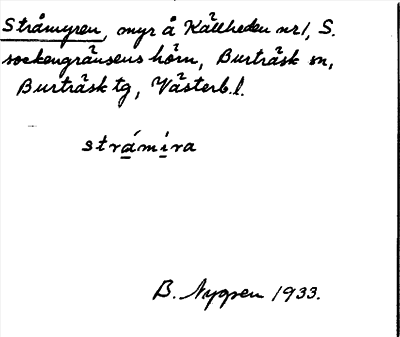 Stråmyren, myr å Källheden nr 1, S.
sockengränsens hörn, Burträsk sn,
Burträsk tg, Västerb. l.
strámira
B. Nygren 1933.